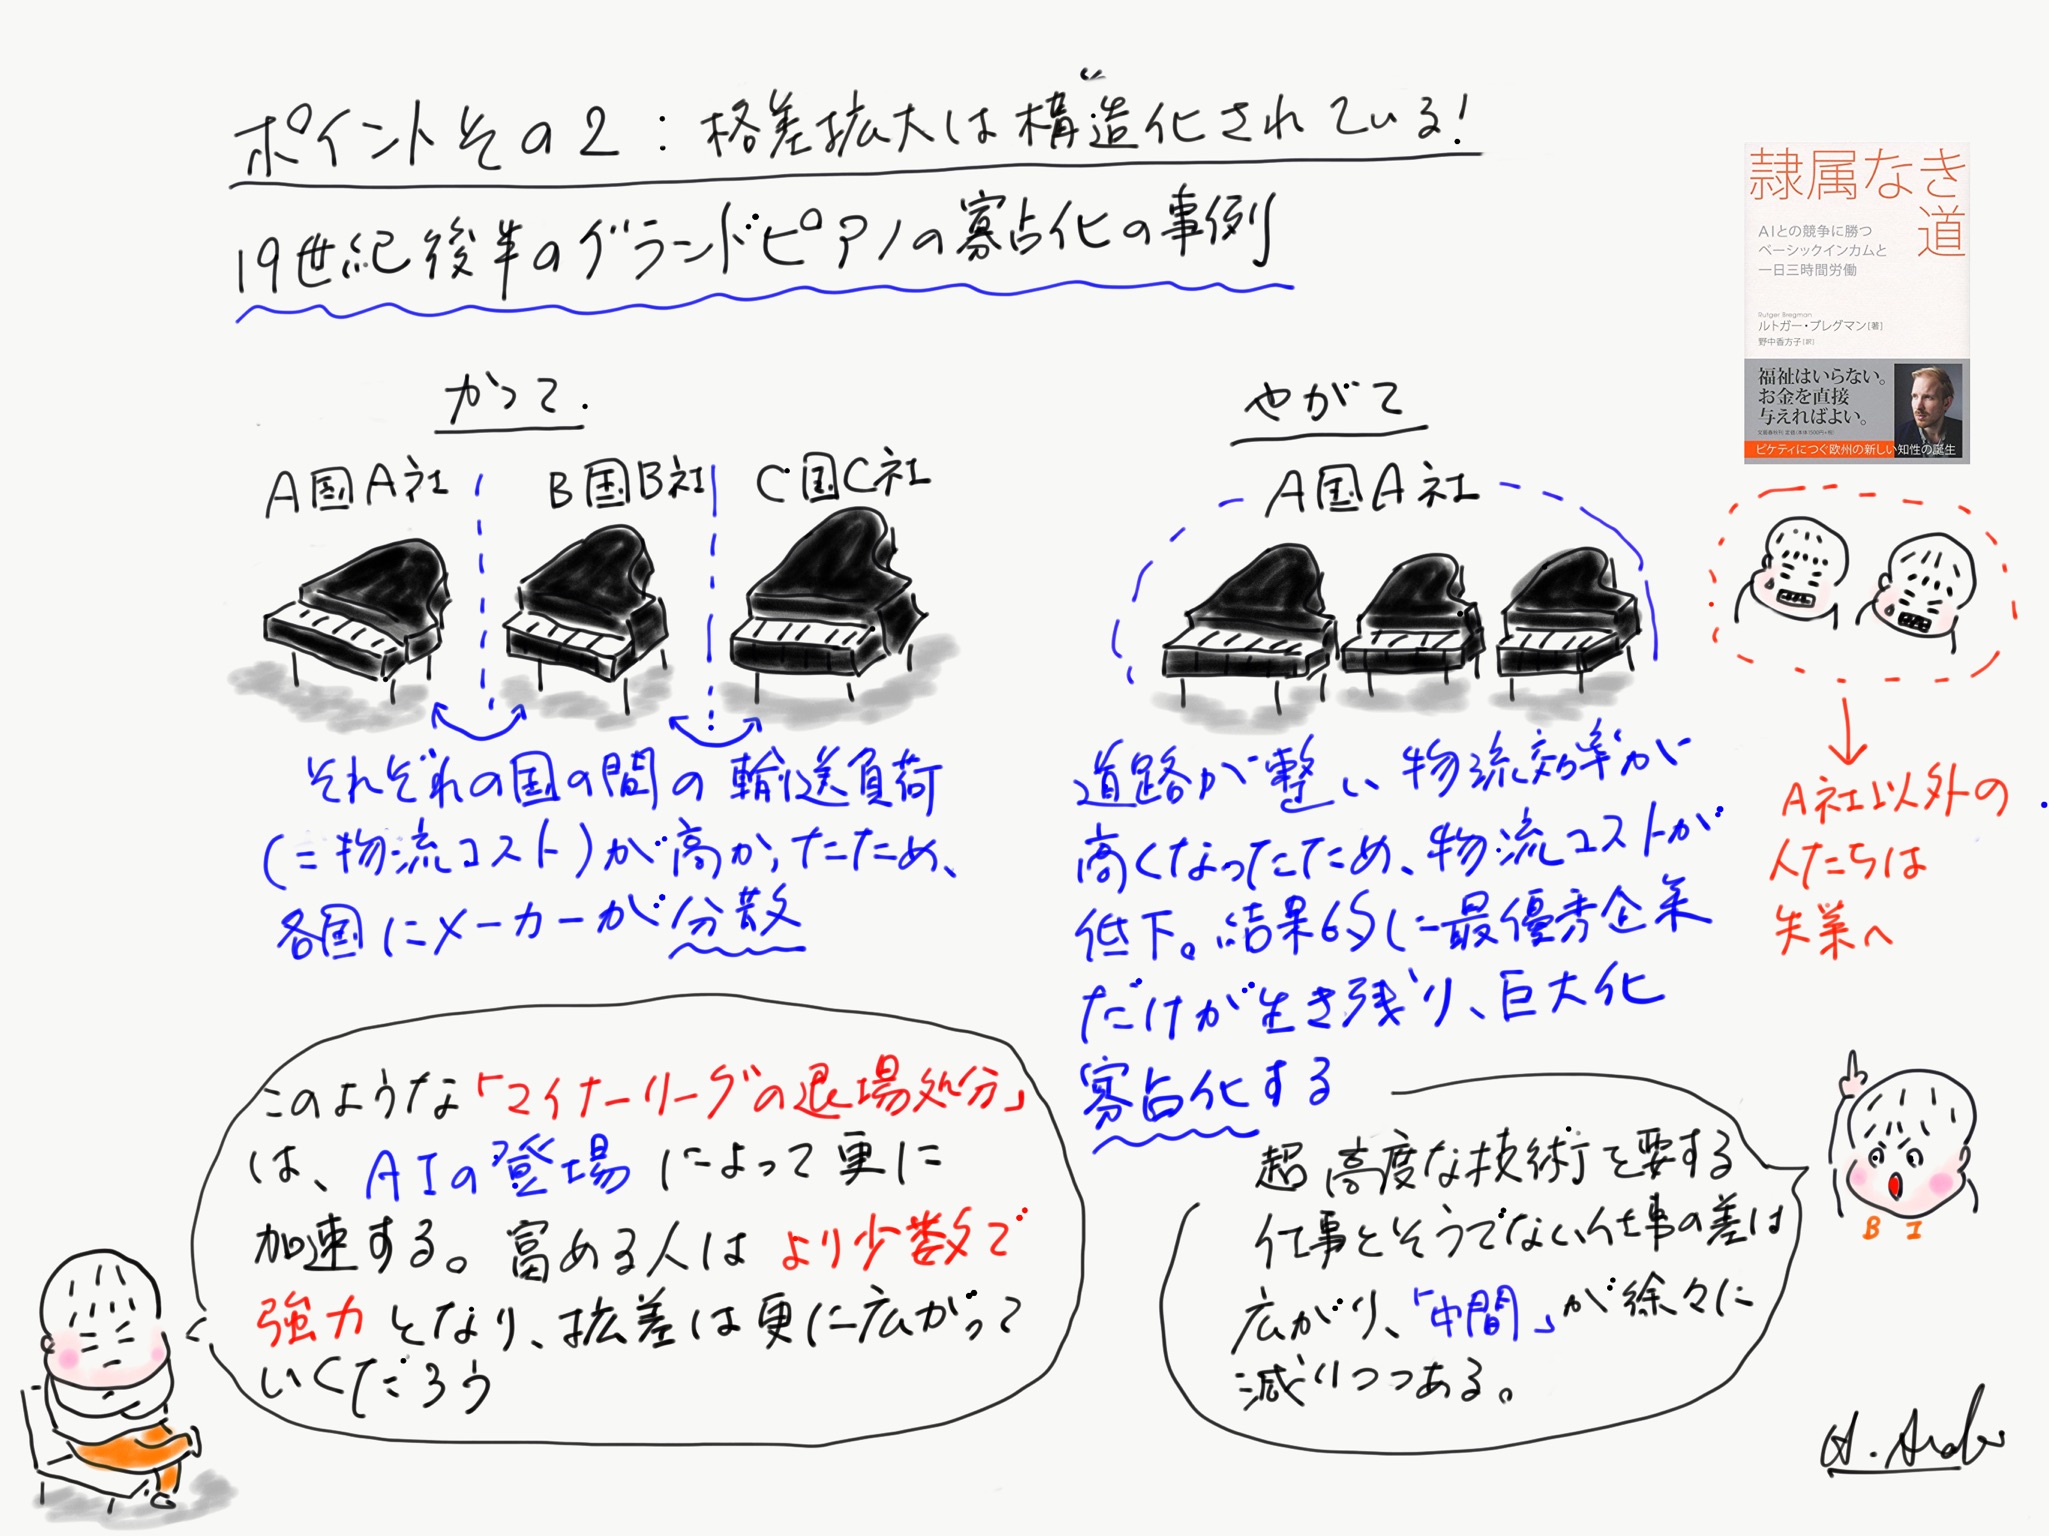 ポイントその2：格差拡大は構造化されている！
19世紀後半のグランドピアノの寡占化の事例
隷属なき
道
AIとの競争に勝つ
ベーシックインカムと
一日三時間労働
Rutger Bregman
ルトガー・ブレグマン[著]
野中香方子[訳]
福祉はいらない。
お金を直接
与えればよい。
ピケティにつぐ欧州の新しい知性の誕生
かつて.
A国A社
B国B社
C国C社
それぞれの国の間の輸送負荷
(=物流コスト)が高かったため、
各国にメーカーが分散
やがて
A国A社
道路が整い物流効率が
高くなったため、物流コストが
低下。結果的に最優秀企業
だけが生き残り、巨大化
寡占化する
A社以外の
人たちは
失業へ
このような「マイナーリーグの退場処分」
は、AIの登場によって更に
加速する。富める人はより少数で
強力となり、拡差は更に広がって
いくだろう
超高度な技術を要する
仕事とそうでない仕事の差は
広がり、「中間」が徐々に
減りつつある。
BI